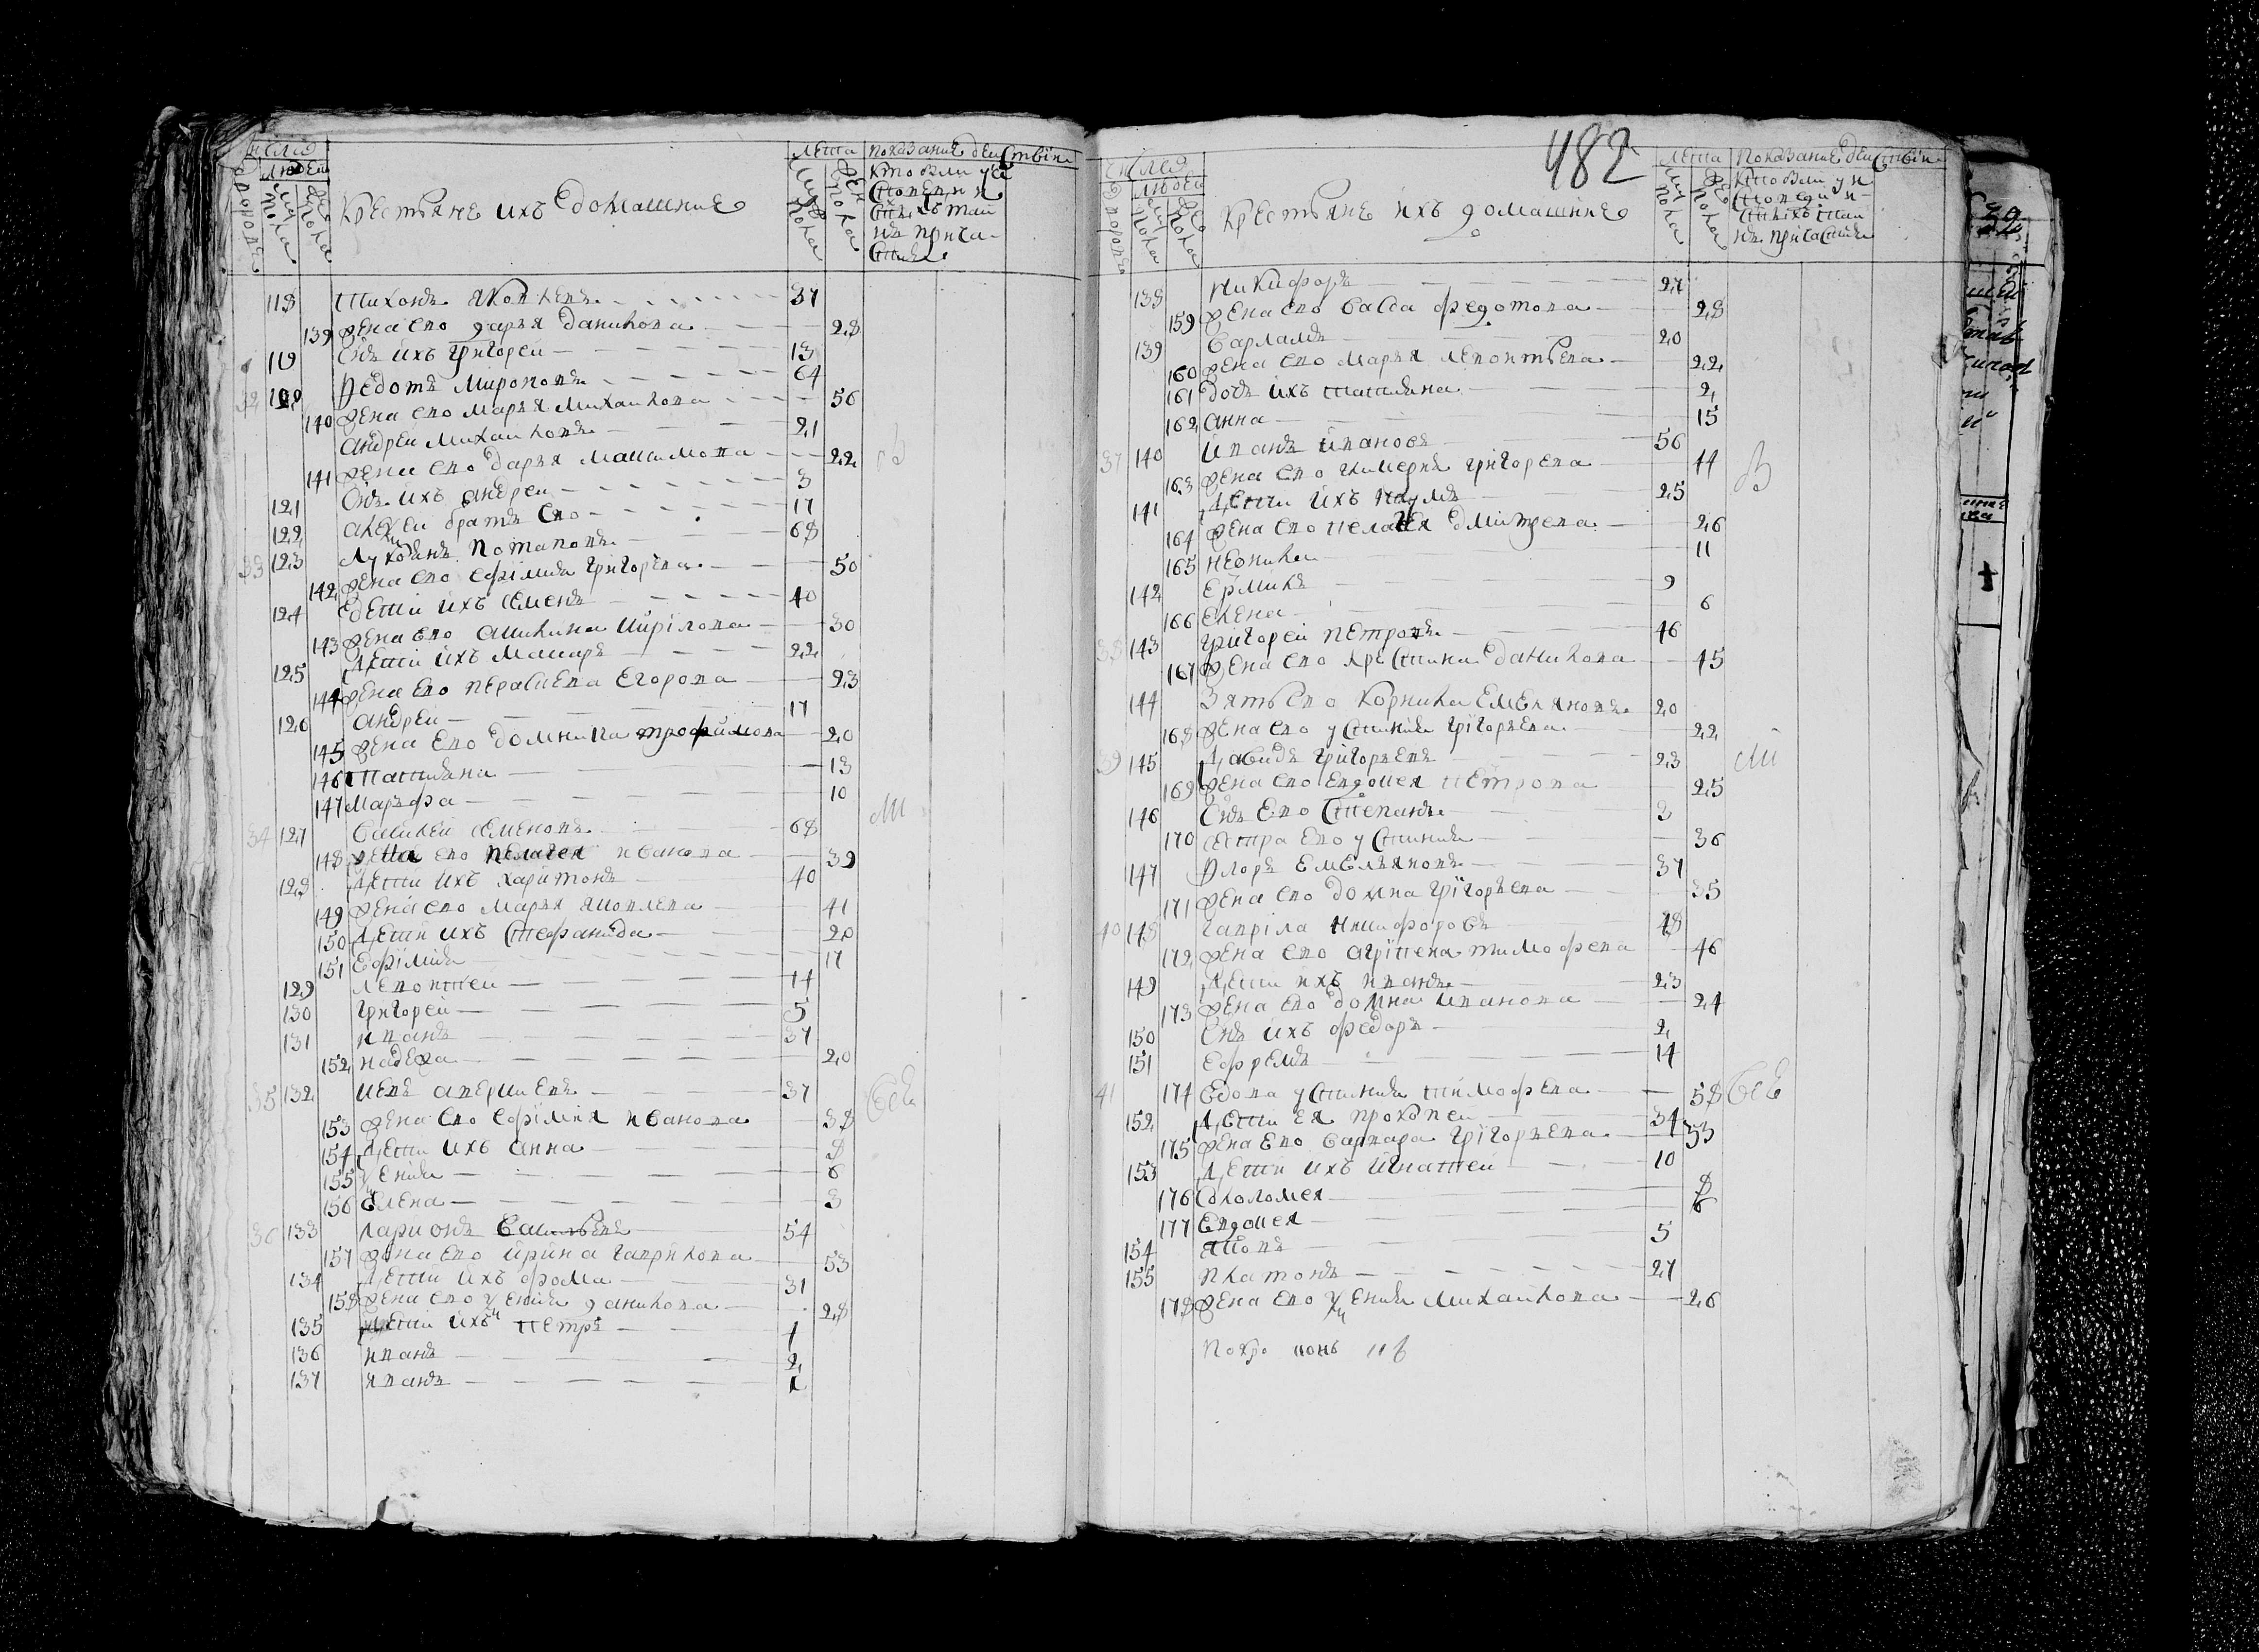 число
людей
дворовъ
муж пола
жен пола
Крестьяне ихъ домашние
лета
муж пола
жен пола
показание действи
кто были у и
споведи и
святыхъ таи
нъ прича
стия
118 Тихонъ Яковлевъ 37
139 жена ево дарья данилова 28
119 снъ ихъ григореи 13
32 120 Федотъ Мироновъ 64
140 жена ево марья михаилова 56
андреи михаиловъ 21
141 жена ево дарья маѯимова 22
121 снъ ихъ андреи 3
122 алеѯеи братъ ево 17
33 123 лукоянъ потаповъ 68
142 жена ево ефимия григорева 50
124 дети ихъ семенъ 40
143 жена ево акилина кирилова 30
125 дети ихъ макаръ 22
144 жена ево перасцева егорова 23
126 андреи 17
145 жена ево домника трофимова 20
146 татияна 13
147 марфа 10
34 127 василеи семеновъ 68
148 жена ево пелагея иванова 39
128 дети ихъ харитонъ 40
149 жена ево марья яковлева 41
150 дети ихъ стефанида 20
151 ефимия 17
129 левонтеи 14
130 григореи 5
131 иванъ 37
152 надежа 20
35 132 иевъ аверкиевъ 37
153 жена ево ефимия иванова 38
154 дети ихъ анна 8
155 ѯения 6
156 елена 3
36 133 ларионъ васильевъ 54
157 жена ево ирина гаврилова 53
134 дети ихъ фома 31
158 жена ево ѯения данилова 28
135 дети ихъ петръ 4
136 иванъ 2
137 иванъ 1
482
число
людей
дворовъ
муж пола
жен пола
Крестьяне ихъ домашние
лета
муж пола
жен пола
показание действи
кто были у и
споведи и
святыхъ таи
нъ причастия
138 никифоръ 27
159 жена ево васса федотова 28
139 варламъ 20
160 жена ево марья левонтьева 22
161 дочь ихъ татияна 2
162 анна 15
37 140 иванъ ивановъ 56
163 жена ево гликерия григорева 44
141 дети ихъ наумъ 25
164 жена ево пелагея дмитрева 26
165 неонила 11
142 ермилъ 9
166 елена 6
38 143 григореи петровъ 46
167 жена ево христина данилова 45
144 зять ево корнила емельяновъ 20
168 жена ево устиния григорьева 22
39 145 давидъ григорьевъ 23
169 жена ево евдокея петрова 25
146 снъ ево степанъ 3
170 сестра ево устиния 36
147 флоръ емельяновъ 37
171 жена ево домна григорьева 35
40 148 гаврила никифоровъ 48
172 жена ево агрипена тимофева 46
149 дети ихъ иванъ 23
173 жена ево домна иванова 24
150 снъ ихъ федоръ 2
151 ефремъ 14
41 174 вдова устиния тимофева 58
152 дети ея прокопеи 34
175 жена ево варвара григорьева 33
153 дети ихъ игнатеи 10
176 соломея 8
177 евдокея 6
154 яковъ 5
155 платонъ 27
178 жена ево ѯения михаилова 26